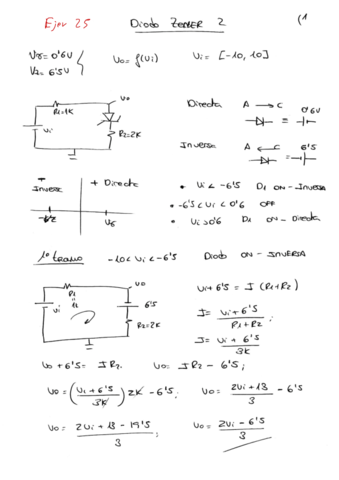 Ejer 25 Diodo ZENER 2 (1
Vγ = 0'6V
Vz = 6'5V
Vo = f(Vi) Vi = [-10, 10]
Vo
R1=1K
Vi
R2=2K
Directa A → C 0'6V
Inversa A ← C 6'5
+ Inversa + Directa
-Vz Vγ
• Vi < -6'5 D1 ON - Inversa
• -6'5 < Vi < 0'6 OFF
• Vi > 0'6 D1 ON - Directa
1º tramo -10 < Vi < -6'5 Diodo ON - INVERSA
R1 Vo
Vi 6'5
R2=2K
Vi + 6'5 = I (R1+R2)
I = Vi + 6'5 / R1 + R2 ;
I = Vi + 6'5 / 3K
Vo + 6'5 = I R2. Vo = I R2 - 6'5 ;
Vo = (Vi + 6'5 / 3K) 2K - 6'5 ; Vo = 2Vi + 13 / 3 - 6'5
Vo = 2Vi + 13 - 19'5 / 3 ; Vo = 2Vi - 6'5 / 3